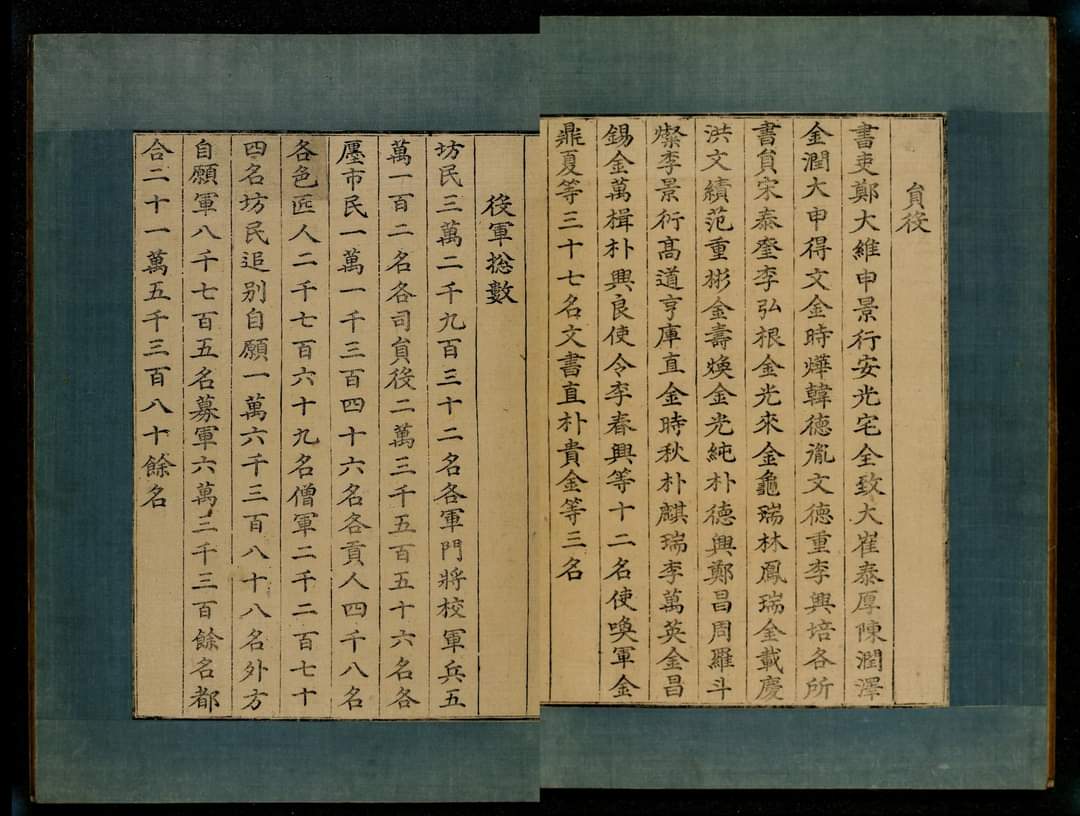 員役
書吏鄭大維申景行安光宅全致大崔泰厚陳潤澤
金潤大申得文金時燁韓德胤文德重李興培各所
書員宋泰奎李弘根金光來金龜瑞林鳳瑞金載慶
洪文績范重彬金壽煥金光純朴德興鄭昌周羅斗
燦李景衍高道亨庫直金時秋朴麒瑞李萬英金昌
錫金萬楫朴興良使令李春興等十二名使喚軍金
鼎夏等三十七名文書直朴貴金等三名
役軍摠數
坊民三萬二千九百三十二名各軍門將校軍兵五
萬一百二名各司員役二萬三千五百五十六名各
廛市民一萬一千三百四十六名各貢人四千八名
各色匠人二千七百六十九名僧軍二千二百七十
四名坊民追別自願一萬六千三百八十八名外方
自願軍八千七百五名募軍六萬三千三百餘名都
合二十一萬五千三百八十餘名